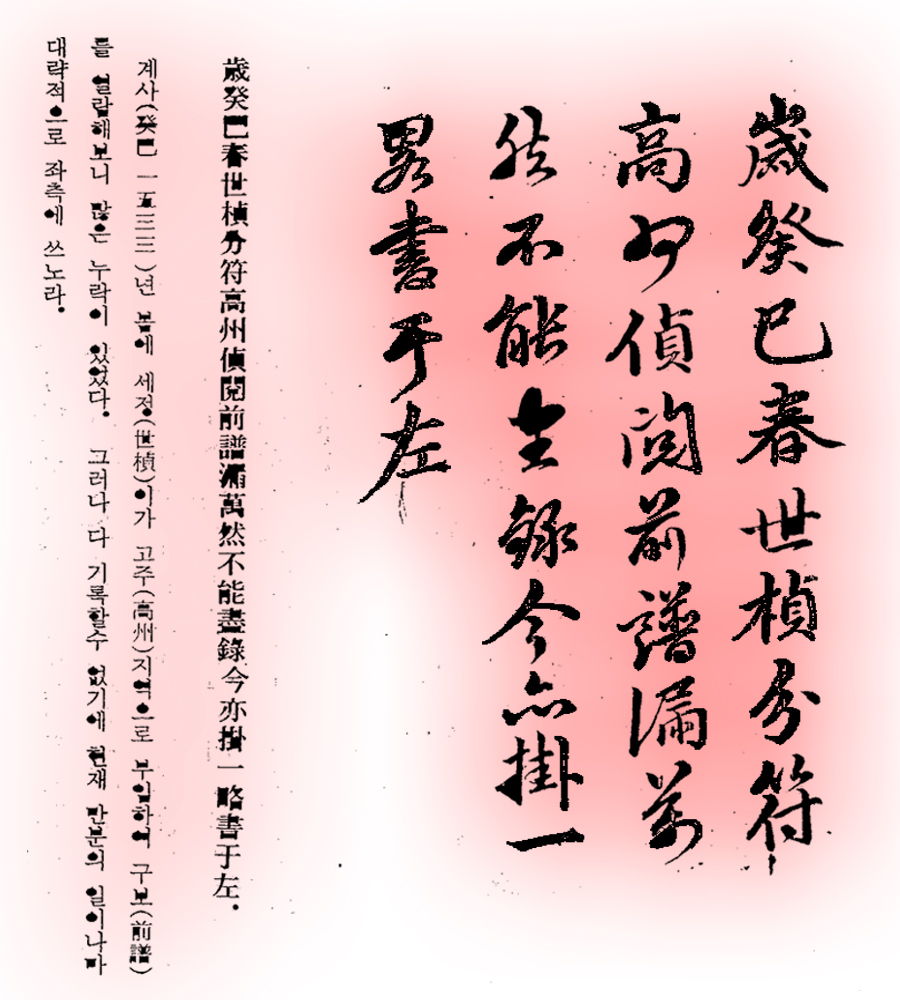 歲癸巳春世楨分符
高州偵閱前譜漏萬
然不能全錄今亦掛一
畧書于左
歲癸巳春世楨分符高州偵閱前譜漏萬然不能盡錄今亦掛一略書于左.
계사(癸巳 一五三三)년 봄에 세정(世楨)이가 고주(高州)지역으로 부임하여 구보(前譜)
를 열람해보니 많은 누락이 있었다. 그러나 다 기록할수 없기에 현재 만분의 일이나마
대략적으로 좌측에 쓰노라.